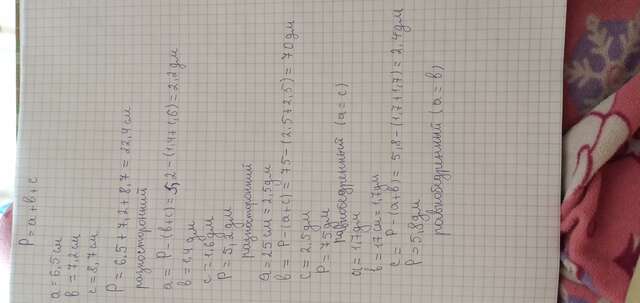 P = a + b + c
a = 6,5 см
b = 7,2 см
c = 8,7 см.
P = 6,5 + 7,2 + 8,7 = 22,4 см
разносторонний
a = P - (b+c) = 5,2 - (1,4+1,6) = 2,2 дм
b = 1,4 дм
c = 1,6 дм
P = 5,2 дм
разносторонний
a = 25 см = 2,5 дм
b = P - (a+c) = 75 - (2,5+2,5) = 70 дм
c = 2,5 дм
P = 75 дм
равнобедренный (a = c)
a = 1,7 дм
b = 17 см = 1,7 дм
c = P - (a+b) = 5,8 - (1,7+1,7) = 2,4 дм
P = 5,8 дм
равнобедренный (a = b)